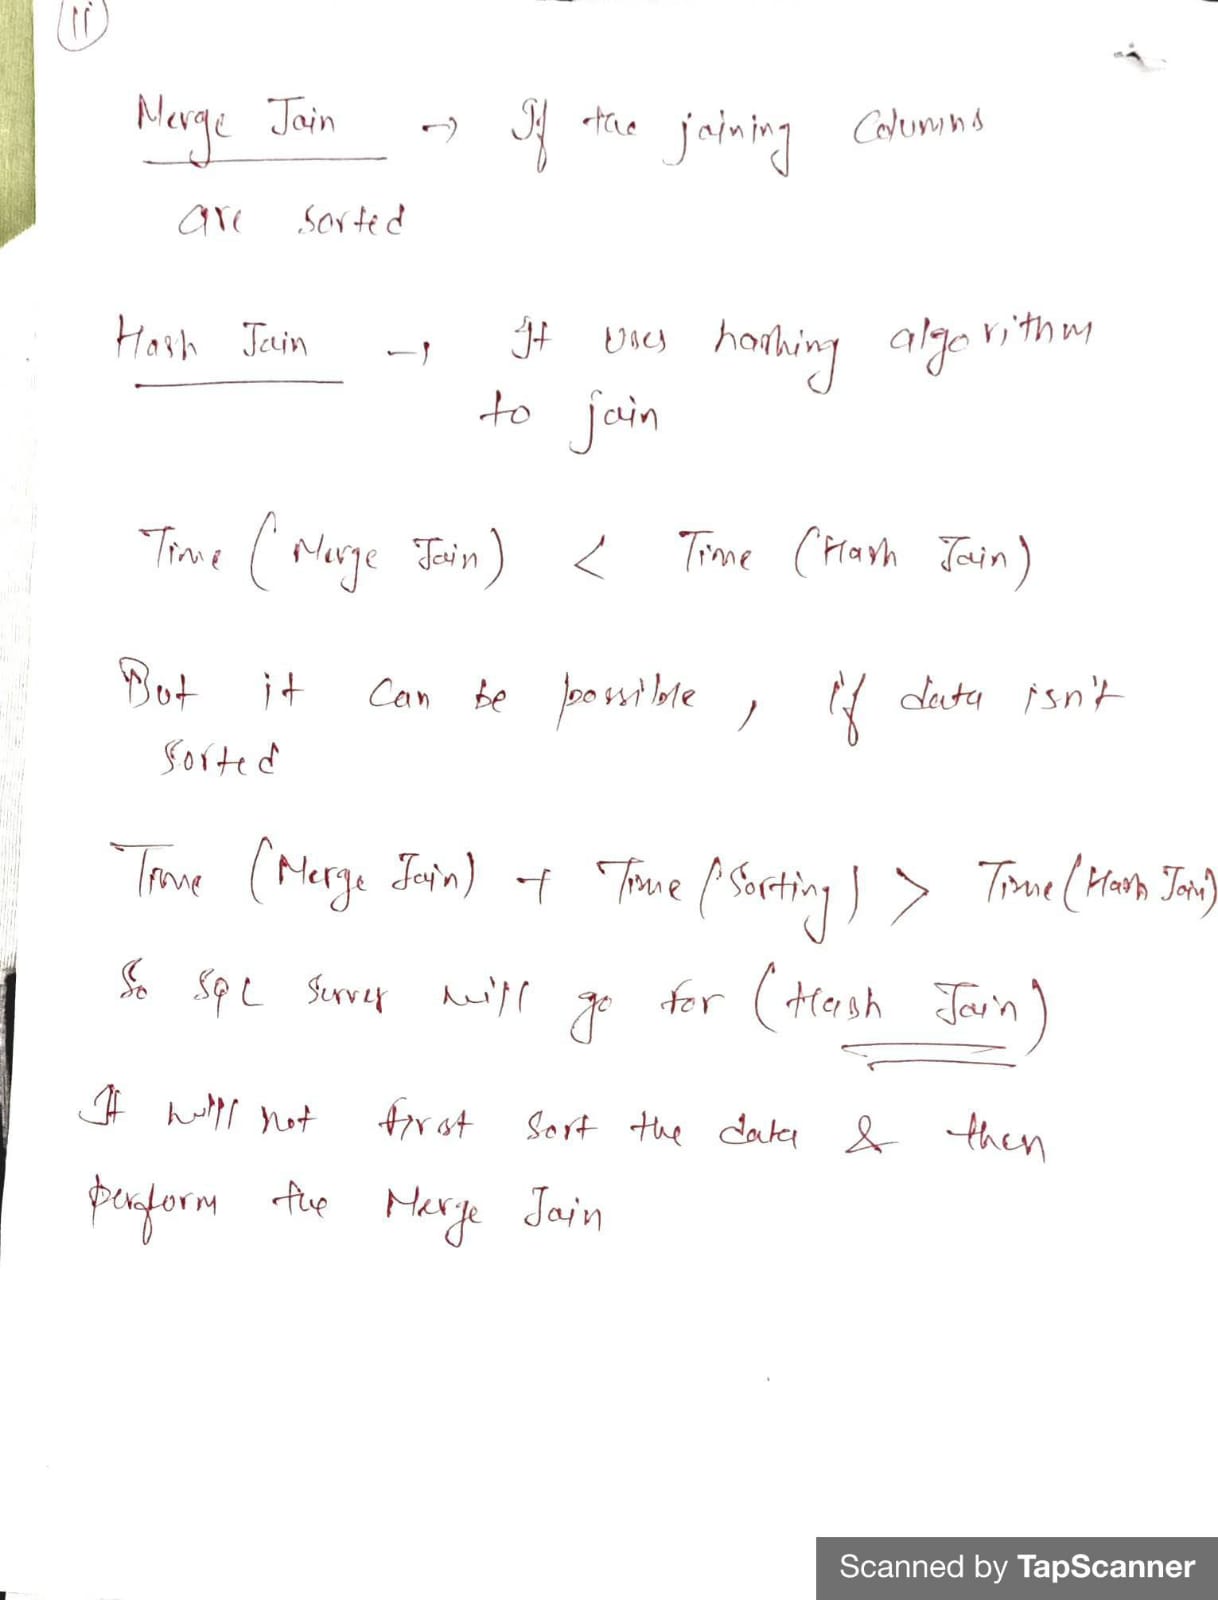 11
Merge Join → If the joining columns
are sorted
Hash Join → It uses hashing algorithm
to join
Time (Merge Join) < Time (Hash Join)
But it can be possible, if data isn't
sorted
Time (Merge Join) + Time (Sorting) > Time (Hash Join)
So SQL Server will go for (Hash Join)
It will not first sort the data & then
perform the Merge Join
Scanned by TapScanner